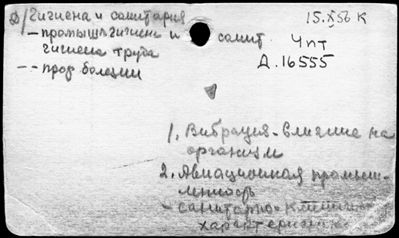 д/ Гигиена и санитария
- промышл. гигиена и санит.
гигиена труда
- - проф болезни
15.X 56 к
Чпт
Д.16555
1. Вибрация - влияние на
организм
2. Авиационная промыш-
ленность
- санитарно-
характеристик